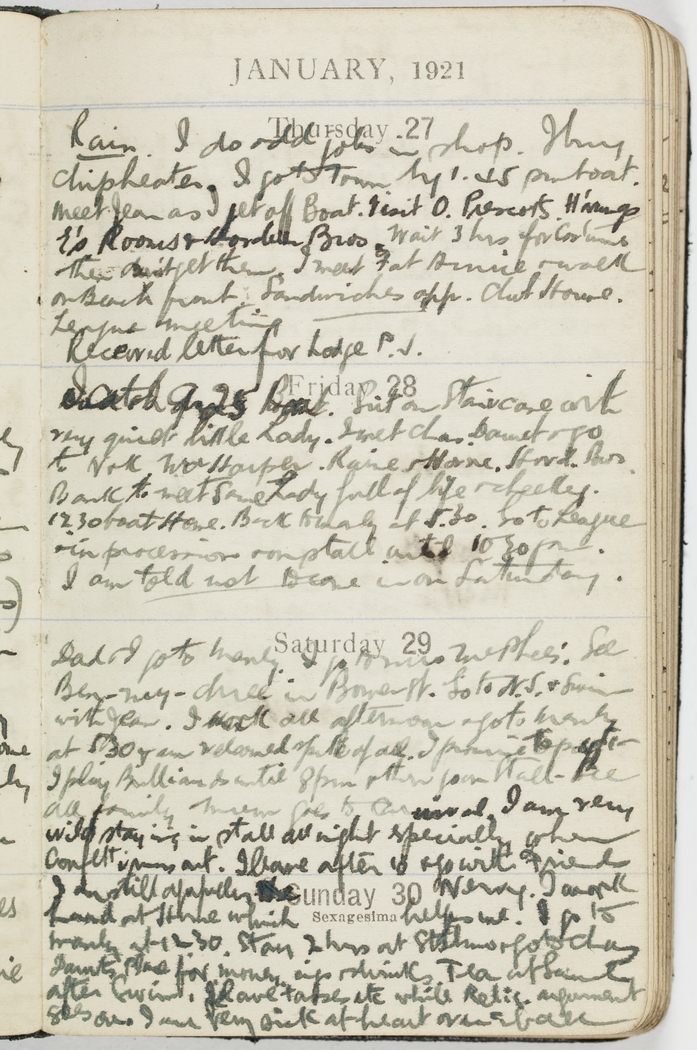 JANUARY, 1921
Thursday 27
Rain. I do odd jobs in shop. I buy
chipheater. I go to Town by 1.45 pm boat.
meet Jean as I get off Boat. Visit O. Prescots,
Rooms & Hordern Bros. Wait 3 hrs for Costume
then don't get them. I meet at & walk
on Back front. Sandwiches opp. Club House.
League meeting
Received letter for Lodge P.J.
Friday 28
I catch Boat. Sit on Staircase with
very quiet little Lady. I met Chas. & go
to Harper. & Horne. Hord. Bros.
Back to meet same Lady full of life & cheeky.
12.30 boat Home. Back to manly at 5.30. Go to League
& in procession run stall until 10 30 pm.
I am told not to come in on Saturday.
Saturday 29
Dad & I go to Manly. I go to miss McPhee's. See
Ben-my-chree in St. Go to N.S. & Swim
with Jean. I work all afternoon & go to manly
at 5.30 & am welcomed spite of all. I promise to
I play Billiards until 8pm & then go on Stall. See
all family. Mum goes to Carnival. I am very
wild staying in stall all night specially when
Confetti runs out. I leave after 10 & go with Friends
Sunday 30
Sexagesima
I am still awfully Nervy. I work
hard at Home which helps me. I go to
manly at 12-30. Stay 2 hrs at & go to Chas
place for money, cigs & drinks. Tea at
after Swim. I leave & take etc while Relig. argument
goes on. I am very sick at heart over